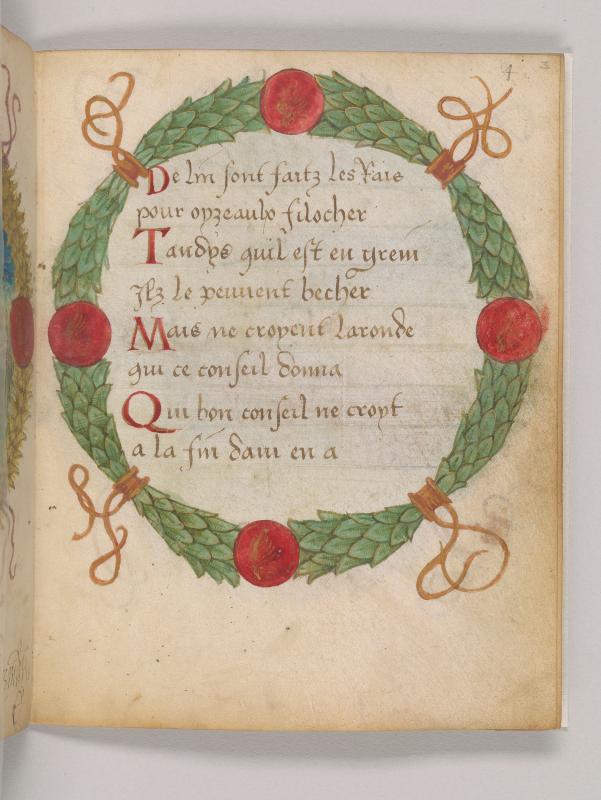 4
De lin sont faitz les Rais
pour oyzeaulx filocher
Tandys quil est en grein
Ilz le peuvent becher
Mais ne croyent laronde
qui ce conseil donna
Qui bon conseil ne croyt
a la fin dam en a